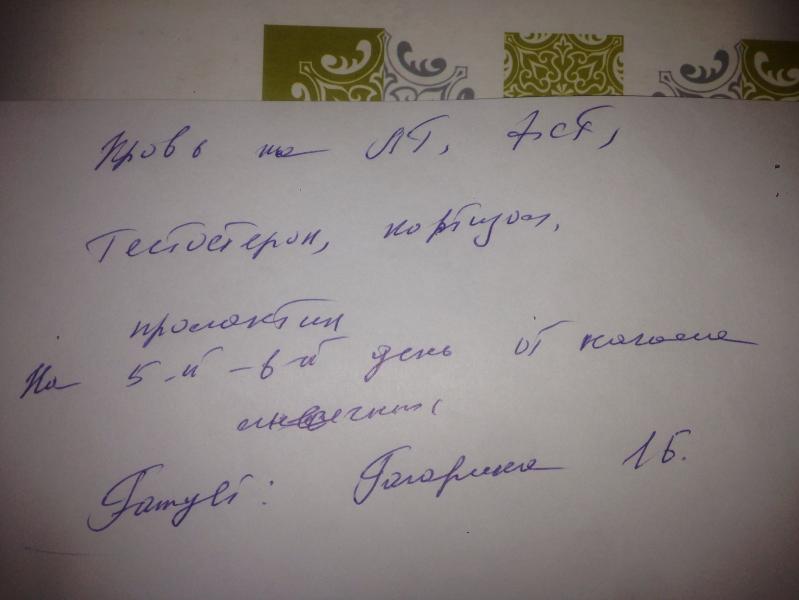 Кровь на ЛГ, ФСГ,
Тестостерон, кортизол,
пролактин
На 5-й – 6-й день от начала
Гагарина 1Б.